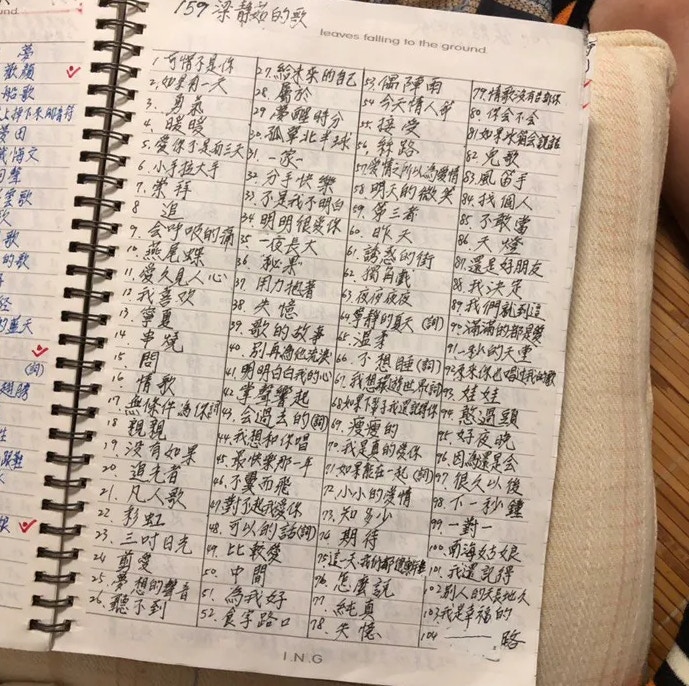 159 梁靜茹的歌
leaves falling to the ground
1. 可惜不是你
2. 如果有一天
3. 勇氣
4. 暖暖
5. 愛你不是兩三天
6. 小手拉大手
7. 崇拜
8 追
9. 會呼吸的痛
10. 燕尾蝶
11. 愛久見人心
12. 我喜歡
13. 寧夏
14. 串燒
15. 問
16. 情歌
17. 無條件為你(詞)
18. 親親
19. 沒有如果
20. 追光者
21. 凡人歌
22. 彩虹
23. 三吋日光
24. 剪愛
25. 夢想的聲音
26. 聽不到
27. 給未來的自己
28. 屬於
29. 夢醒時分
30. 孤單北半球
31. 一家一
32. 分手快樂
33. 不是我不明白
34. 明明很愛你
35. 一夜長大
36. 秘果
37. 用力抱著
38. 失憶
39. 歌的故事
40. 別再為他流淚
41. 明明白白我的心
42. 掌聲響起
43. 會過去的(詞)
44. 我想和你唱
45. 最快樂那一年
46. 不翼而飛
47. 對不起我愛你
48. 可以的話(詞)
49. 比較愛
50. 中間
51. 為我好
52. 食字路口
53. 偶陣雨
54. 今天情人節
55. 接受
56. 絲路
57. 愛情之所以為愛情
58. 明天的微笑
59. 第三者
60. 昨天
61. 誘惑的街
62. 獨角戲
63. 夜夜夜夜
64. 寧靜的夏天(詞)
65. 溫柔
66. 不想睡(詞)
67. 我想環遊世界(詞)
68. 如果下輩子我還記得你
69. 瘦瘦的
70. 我是真的愛你
71. 如果能在一起(詞)
72. 小小的愛情
73. 知多少
74. 期待
75 這一天我們都健康
76. 怎麼說
77. 純真
78. 失憶
79. 情歌沒有告訴你
80. 你會不會
81. 如果冰箱會說話
82. 兒歌
83. 風笛手
84. 找個人
85. 不敢當
86. 天燈
87. 還是好朋友
88. 我決定
89. 我們就到這
90. 滿滿的都是愛
91. 一秒的天堂
92. 未來你也唱過我的歌
93. 娃娃
94. 憨過頭
95. 好夜晚
96. 因為還是會
97. 很久以後
98. 下一秒鐘
99. 一對一
100. 南海姑娘
101. 我還記得
102. 別人的天長地久
103. 我是幸福的
104 一 路
I.N.G